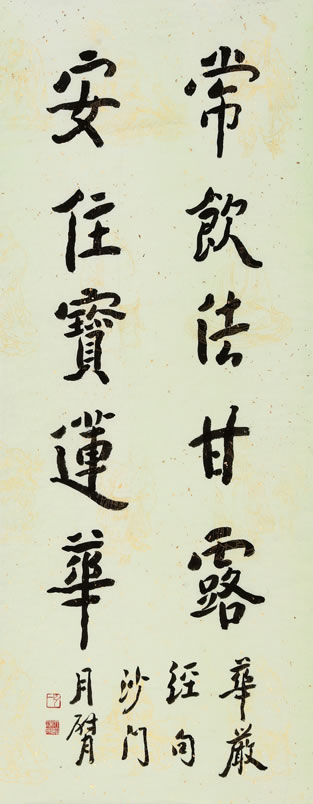 常飲法甘露
安住寶蓮華
華嚴
經句
沙门
月臂